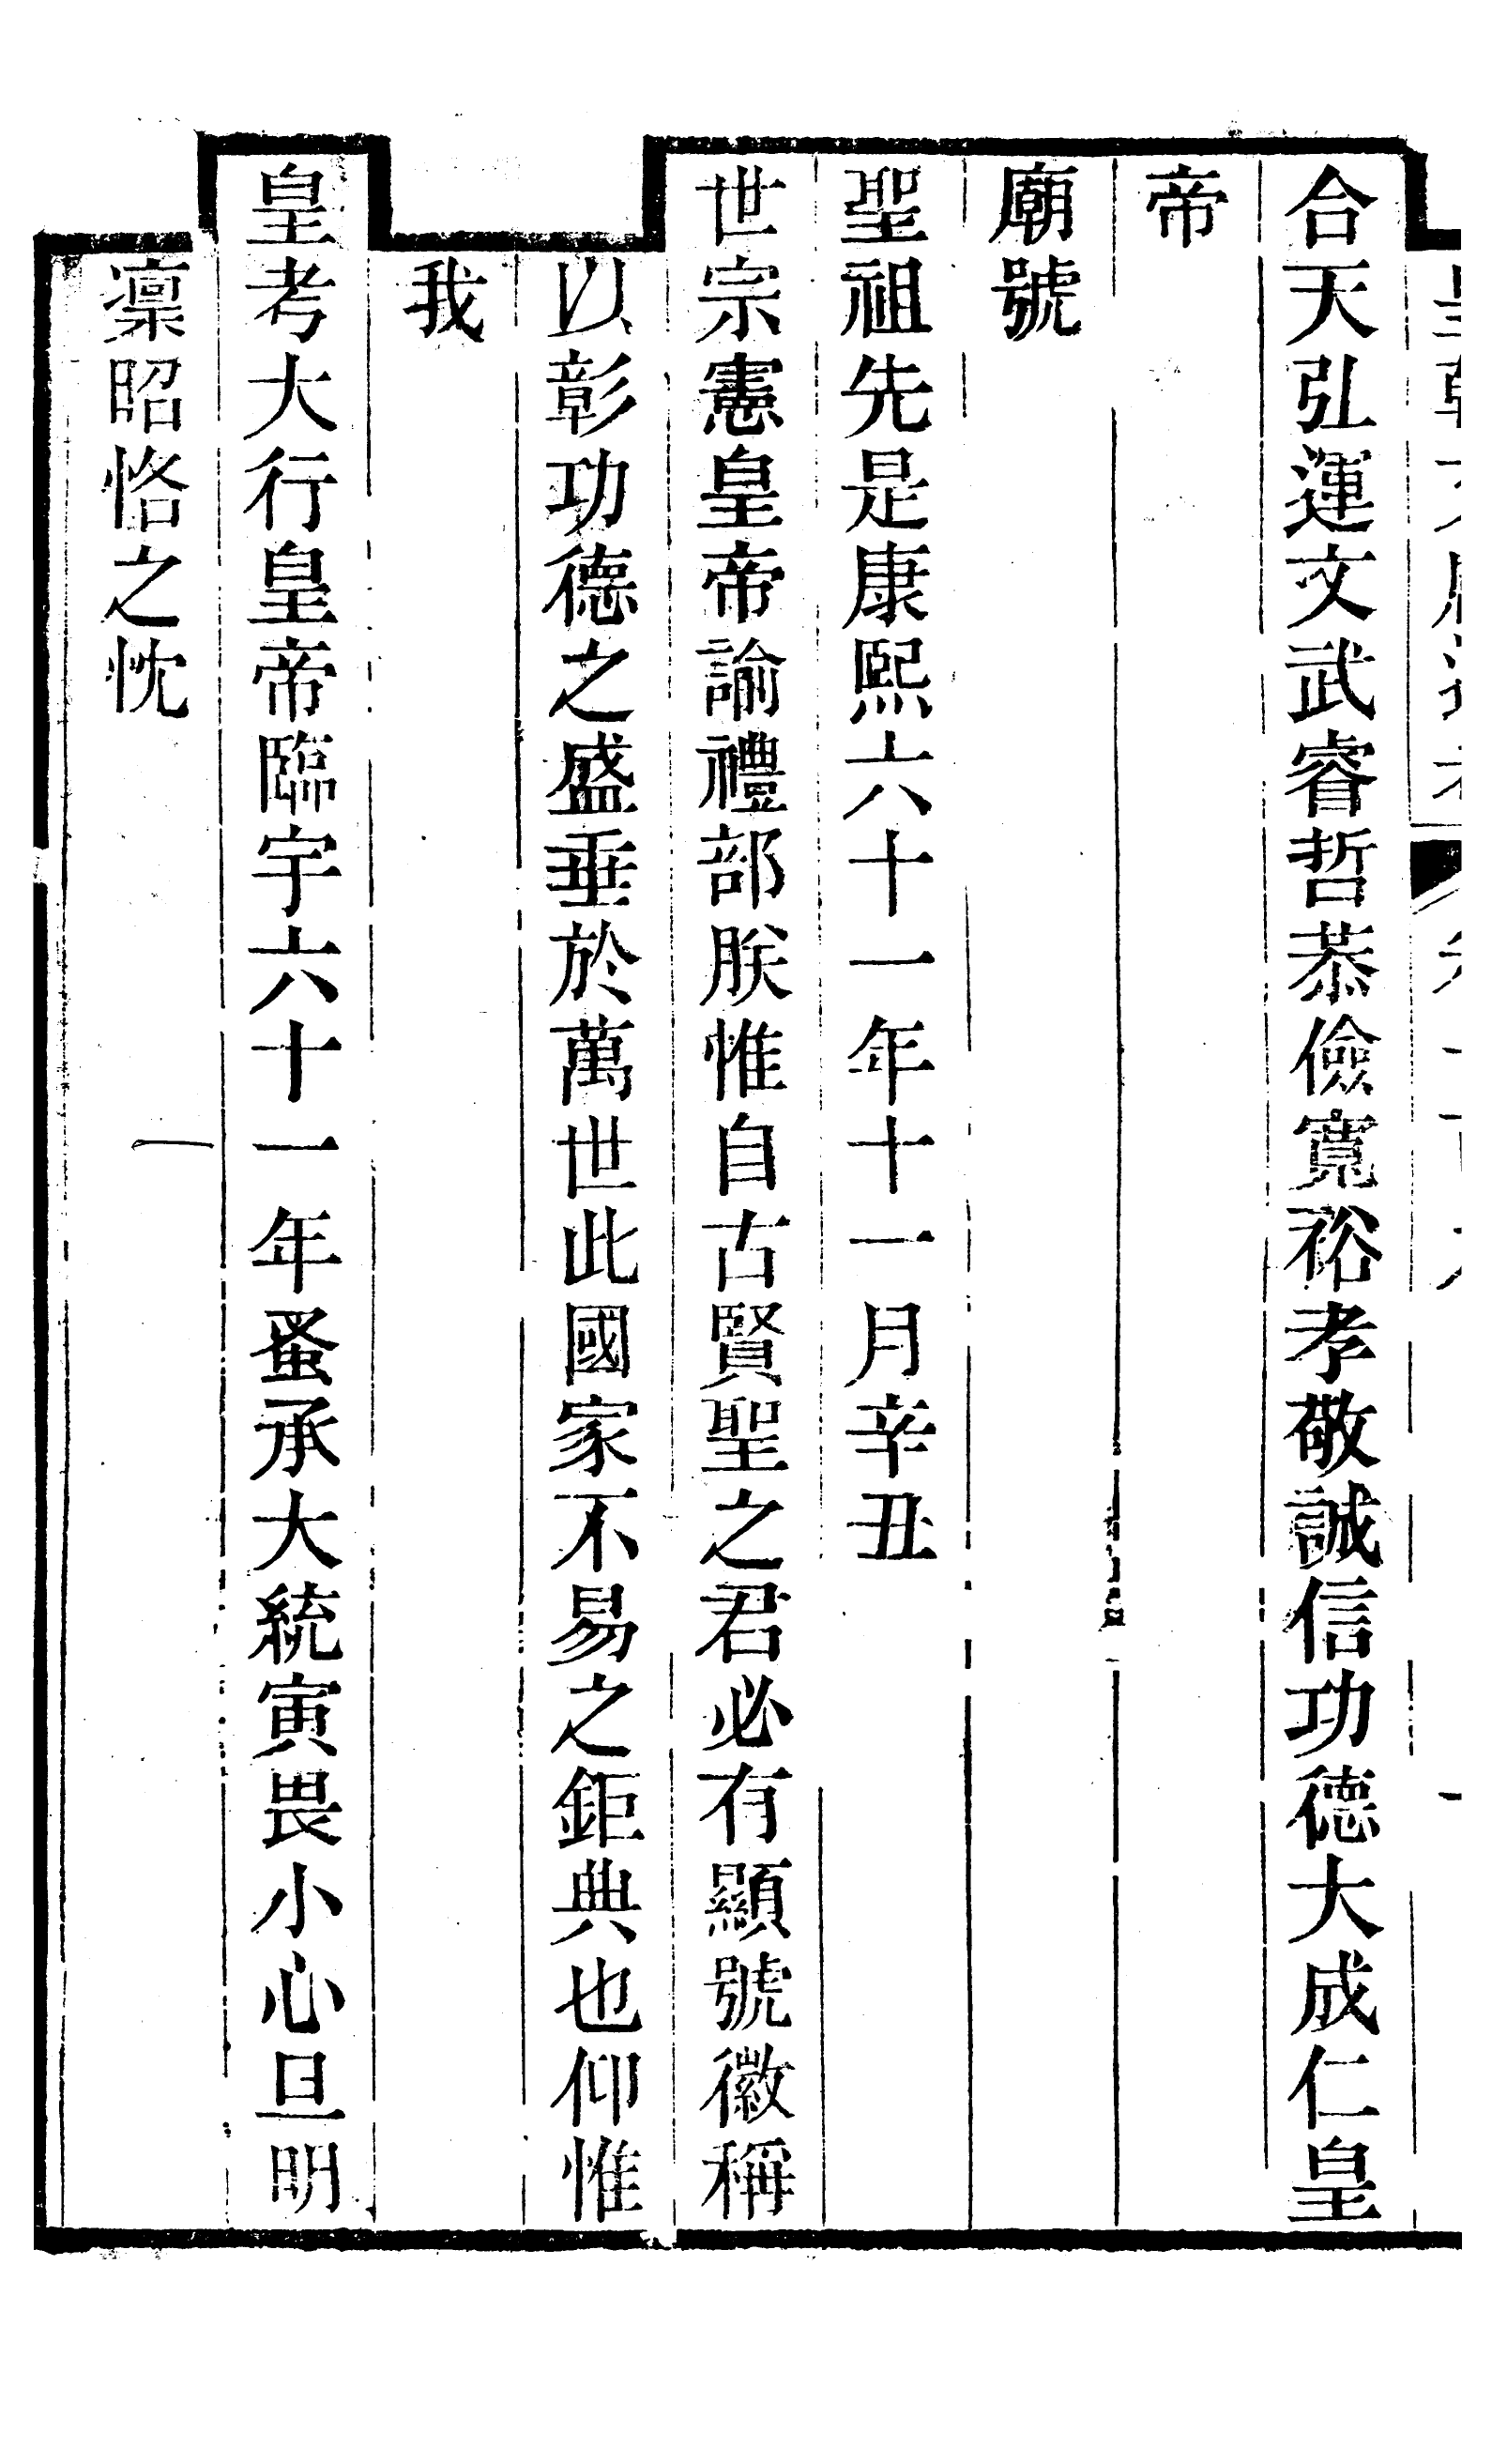 合天弘運文武睿哲恭儉寬裕孝敬誠信功德大成仁皇
帝
廟號
聖祖先是康熙六十一年十一月辛丑
世宗憲皇帝諭禮部朕惟自古賢聖之君必有顯號徽稱
以彰功德之盛垂於萬世此國家不易之鉅典也仰惟
我
皇考大行皇帝臨宇六十一年蚤承大統寅畏小心旦明
凛昭恪之忱